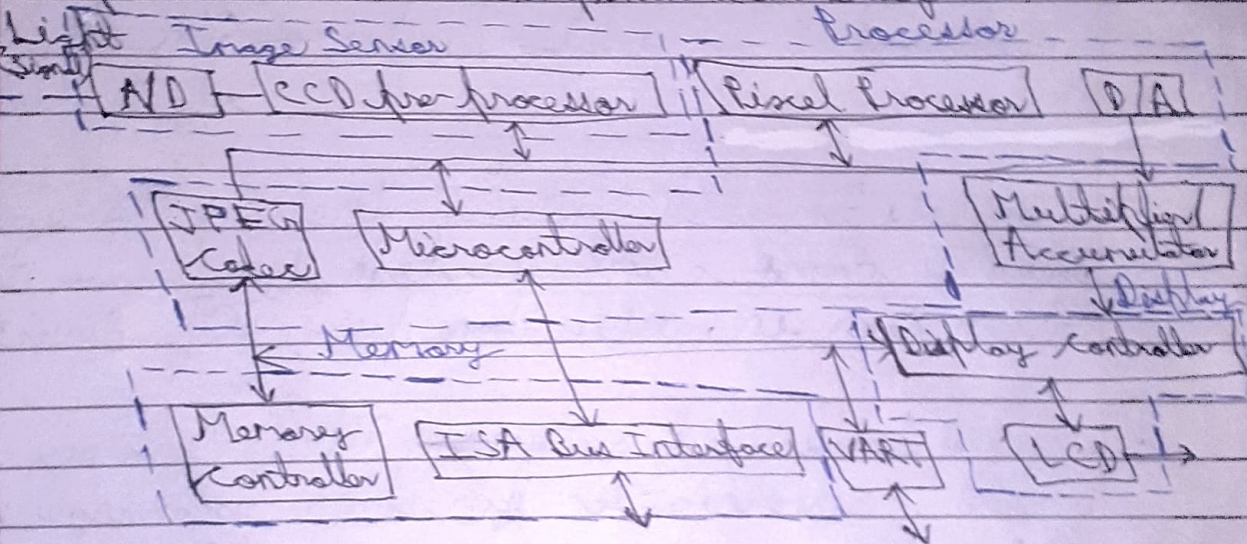 Light Image Sensor Processor
Signal A/D CCD pre-processor Pixel Processor D/A
JPEG Codec Microcontroller Multiplier/ Accumulator
Display
Memory Display Controller
Memory Controller ISA Bus Interface UART LCD